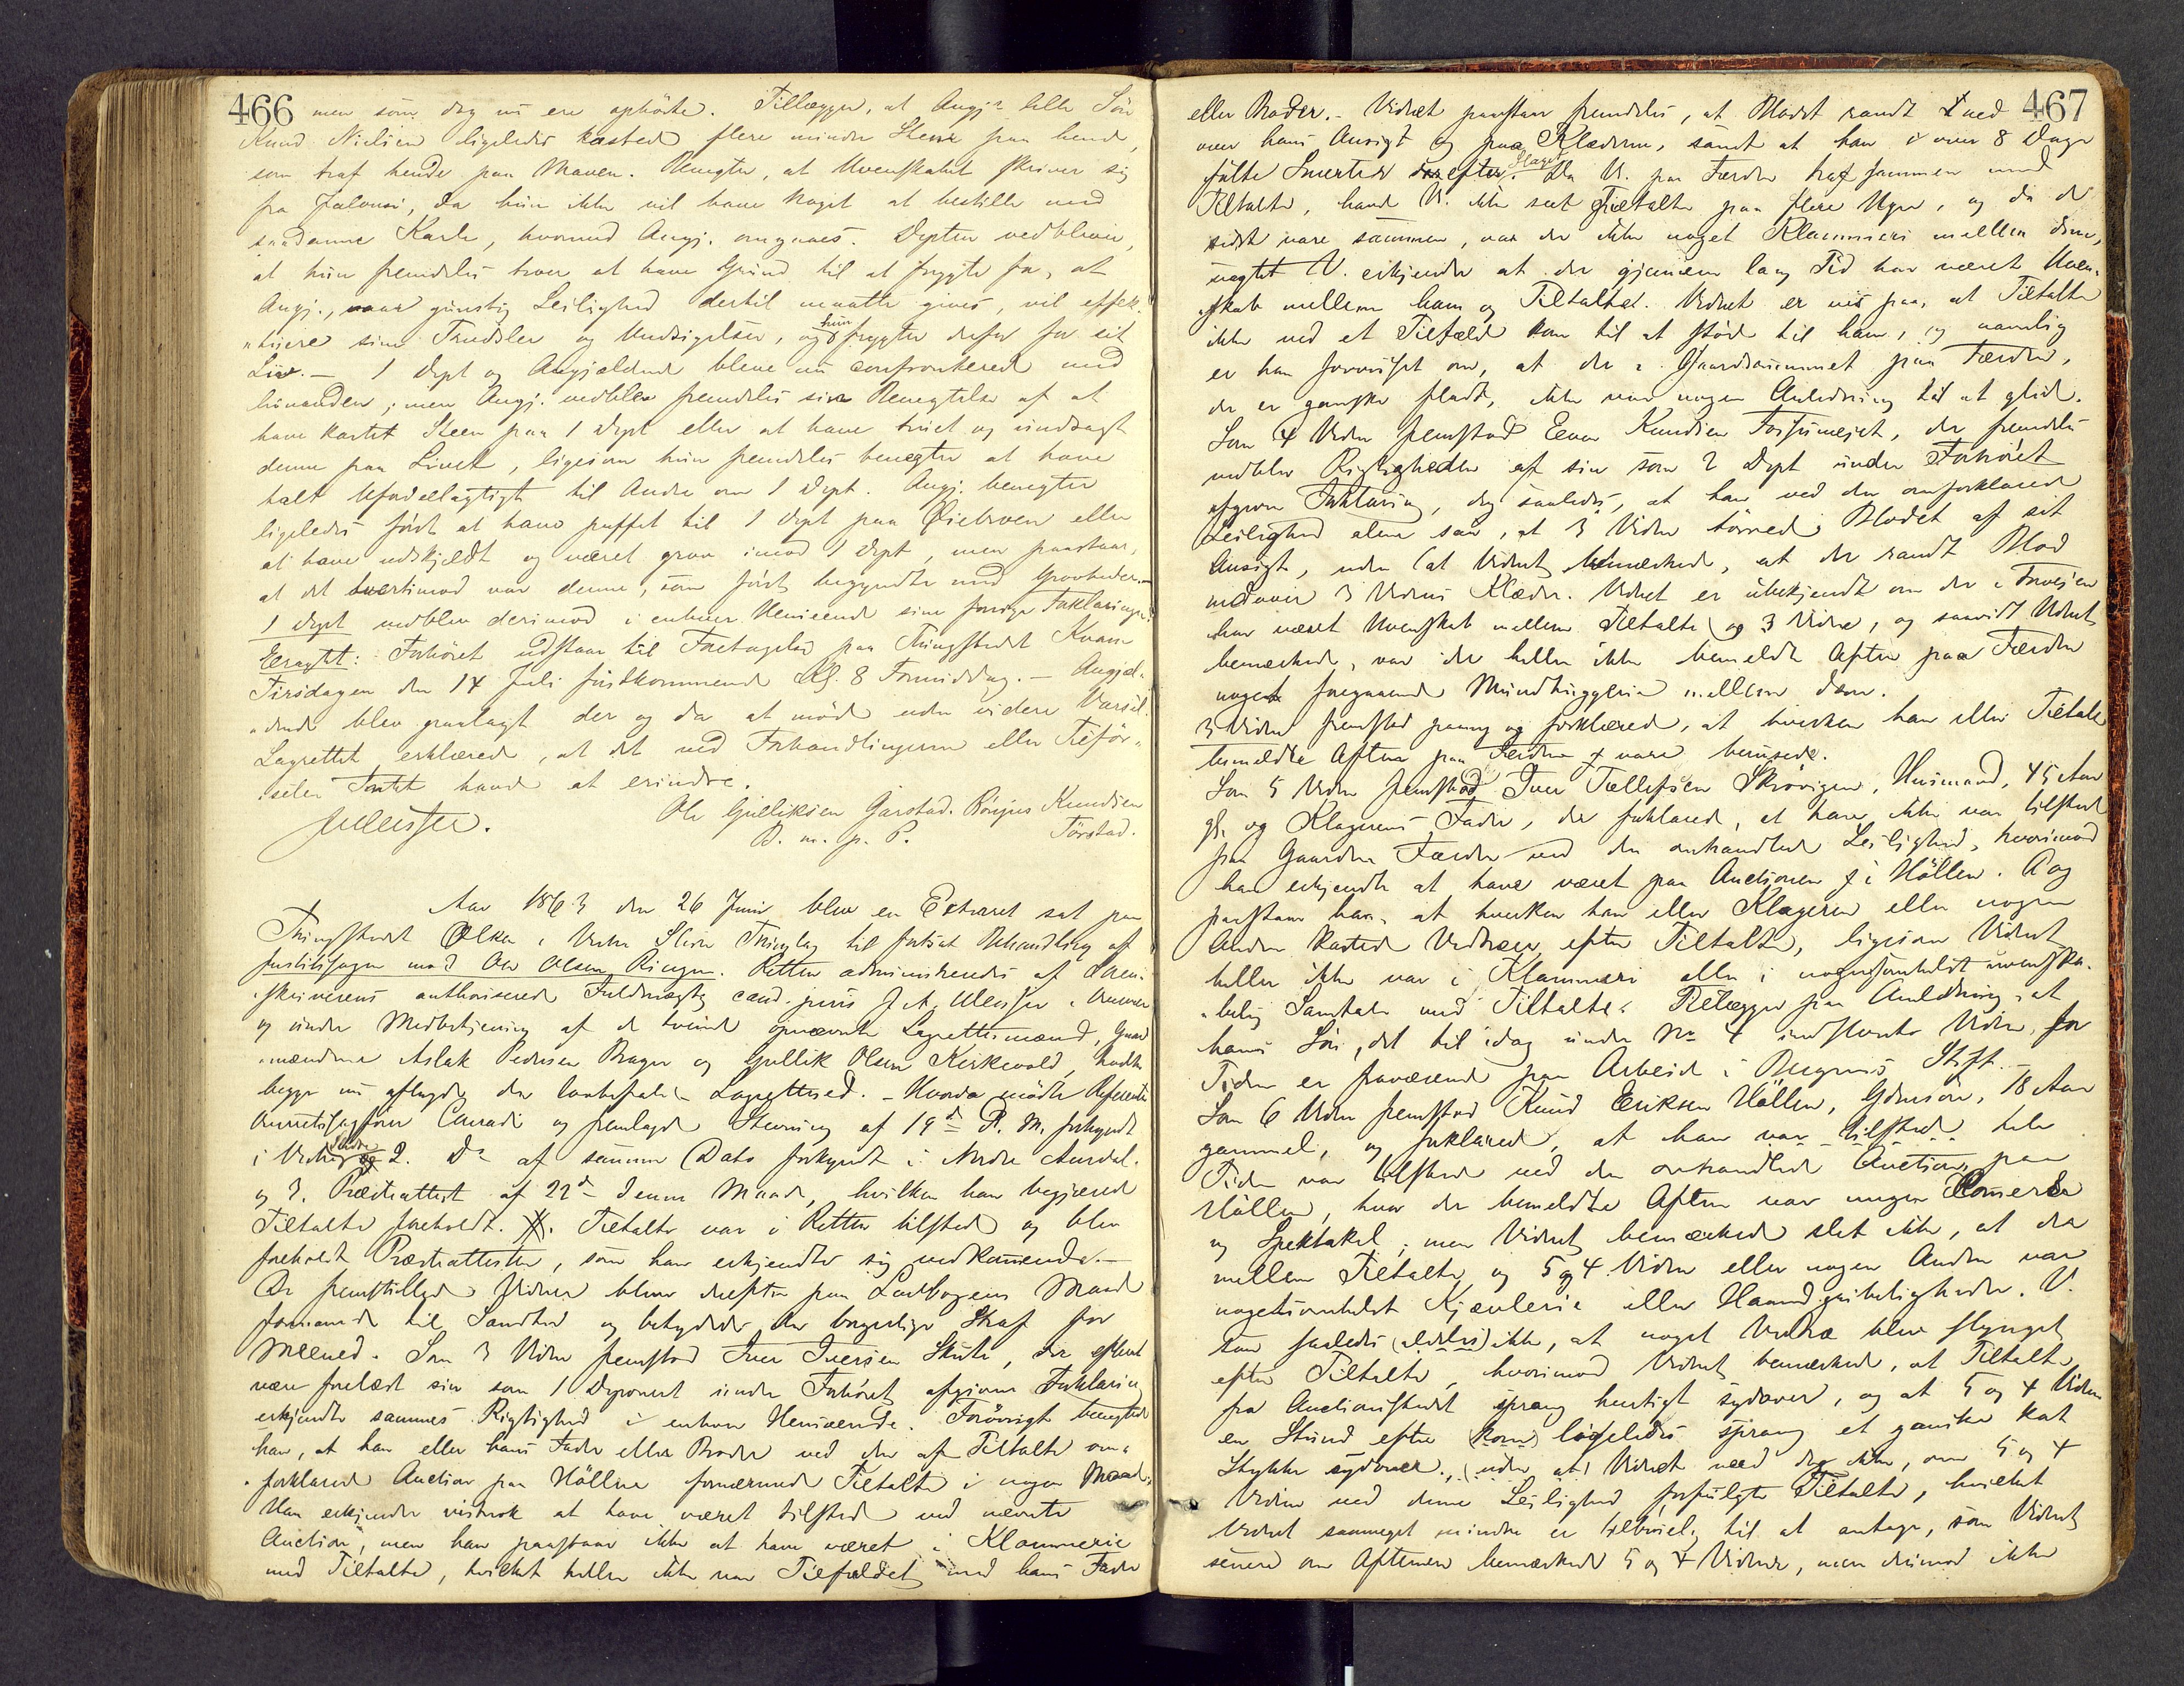 466
men som dog nu ere ophörte. Tillægger, at Angj? lille Sön
Knud Nielsen ligeledes kastede flere mindre Stene paa hende,
som traf hende paa Maven. Benegter, at Uvenskabet skriver sig
fra Jalousi, da hun ikke vil have noget at bestille med
saadanne Karle, hvormed Angj. omgaaes. Depten vedbliver,
at hun fremdeles troer at have Grund til at frygte for, at
Angj., naar gunstig Leilighed dertil maatte gives, vil effek-
tuere sine Trudsler og Undsigelser, og hun frygter derfor for sit
Liv. — 1 Dept og Angjældende bleve nu confronterede med
hinanden; men Angj. vedblev fremdeles sin Benegtelse af at
have kastet Steen paa 1 Dept eller at have truet og undsagt
denne paa Livet, ligesom hun fremdeles benegter at have
talt ufordelagtigt til Andre om 1 Dept. Angj. benegter
ligeledes först at have puffet til 1 Dept paa eller
at have udskjeldt og været grov imod 1 Dept, men paastaar,
at det tvertimod var denne, som först begyndte med Grovheder. —
1 Dept vedblev derimod i enhver Henseende sine forrige Forklaringer.
Eragtet: Forhöret udstaar til Foretagelse paa Thingstedet Kvam
Tirsdagen den 14 Juli förstkommende Kl. 8 Formiddag. — Angjæl-
dende blev paalagt der og da at möde uden videre Varsel.
Lagrettet erklærede, at det ved Forhandlingerne eller Tilför-
selen Intet havde at erindre.
Ole Gulliksen Garstad. Knudsen
M. m. p. P. Törstad.
Aar 1863 den 26 Juni blev en Extraret sat paa
Thingstedet Ölken i Vestre Slidre Thinglag til fortsat Behandling af
Justitssagen mod Ole Olsen Ringen. Retten administreredes af Soren-
skriverens authoriserede Fuldmægtig cand. juris
og under Medbetjening af de tvende opnævnte Lagrettesmænd, Gaard-
mændene Aslak Pedersen Brager og Gullik Olsen Kirkevold, hvilke
begge nu aflagde den lovbefalede Lagretteed. — Hvorda mödte Referenten
Overretssagförer Conradi og fremlagde Stevning af 19de d. M. forkyndt
i Vestre Slidre 2. Do af samme Dato forkyndt i Nordre Aurdal.
og 3. Præsteattest af 22de denne Maaned, hvilken han begjærede
Tiltalte foreholdt. Tiltalte var i Retten tilstede og blev
foreholdt Præsteattesten, som han erkjendte sig vedkommende. —
De fremstillede Vidner bleve derefter paa Lovbogens Maade
formanede til Sandhed og betydede den borgerlige Straf for
Meened. Som 3 Vidne fremstod Iver Iversen Skute, der efterat
være forelæst sin som 1 Deponent under Forhöret afgivne Forklaring
erkjendte sammes Rigtighed i enhver Henseende. Forövrigt benegtede
han, at han eller hans Fader eller Broder ved den af Tiltalte om-
forklarede Auction paa Höllen fornærmede Tiltalte i nogen Maade.
Han erkjender vistnok at have været tilstede ved nævnte
Auction, men han paastaar ikke at have været i Klammerie
med Tiltalte, hvilket heller ikke var Tilfældet med hans Fader
467
eller Broder. — Vidnet paastaar fremdeles, at Blodet randt ned
over hans Ansigt og paa Klæderne, samt at han i over 8 Dage
fölte Smerter efter Slaget. Da V. paa Færden traf sammen med
Tiltalte, havde V. ikke seet Tiltalte paa flere Uger, og da de
sidst vare sammen, var der ikke noget Klammeri mellem dem,
uagtet V. erkjender at der gjennem lang Tid har været Uven-
skab mellem ham og Tiltalte. Vidnet er vis paa, at Tiltalte
ikke ved et Tilfælde kom til at stöde til ham, og navnlig
er han forvisset om, at der i Gaardsrummet paa Færden,
der er ganske fladt, ikke var nogen Anledning til at glide.
Som 4 Vidne fremstod Even Knudsen, der fremdeles
vedblev Rigtigheden af sin som 2 Dept under Forhöret
afgivne Forklaring, dog saaledes, at han ved den omforklarede
Leilighed alene saa, at 3 Vidne törrede Blodet af sit
Ansigt, uden at Vidnet bemærkede, at der randt Blod
nedover 3 Vidnes Klæder. Vidnet er ubekjendt om der i Forveien
har været Uvenskab mellem Tiltalte og 3 Vidne, og saavidt Vidnet
bemærkede, var der heller ikke bemeldte Aften paa Færden
noget foregaaende Mundhuggerie mellem dem.
3 Vidne fremstod paany og forklarede, at hverken han eller Tiltalte
bemeldte Aften paa Færden vare berusede.
Som 5 Vidne fremstod Iver Tollefsen Skrövigen, Huusmand, 45 Aar
gl. og Klagerens Fader, der forklarede, at han ikke var tilstede
paa Gaarden Færden ved den omhandlede Leilighed, hvorimod
han erkjendte at have været paa Auctionen i Höllen. Dog
paastaar han, at hverken han eller Klageren eller nogen
Anden kastede Vedtræer efter Tiltalte, ligesom Vidnet
heller ikke var i Klammeri eller i nogensomhelst uvenska-
belig Samtale med Tiltalte. Tillægger paa Anledning, at
hans Sön, det til idag under No 4 indstevnte Vidne, for
Tiden er fraværende paa Arbeide i Bergens Stift. —
Som 6 Vidne fremstod Knud Eriksen Höllen, Gdmsön, 18 Aar
gammel, og forklarede, at han var tilstede hele
Tiden var tilstede ved den omhandlede Auction paa
Höllen, hvor der bemeldte Aften var nogen Commers
og Spektakel; men Vidnet bemærkede slet ikke, at der
mellem Tiltalte og 5 og 4 Vidne eller nogen Anden var
nogetsomhelst Kjævlerie eller Haandgribeligheder. V.
saa saaledes (aldeles) ikke, at noget Vedtræ blev slynget
efter Tiltalte, hvorimod Vidnet bemærkede, at Tiltalte
fra Auctionsstedet sprang hurtigt sydover, og at 5 og 4 Vidne
en Stund efter (kom) ligeledes sprang et ganske kort
Stykke sydover, (uden at) Vidnet veed dog ikke, om 5 og 4
Vidne ved denne Leilighed forfulgte Tiltalte, hvilket
Vidnet saameget mindre er tilböielig til at antage, som Vidnet
senere om Aftenen bemærkede 5 og 4 Vidne, men derimod ikke